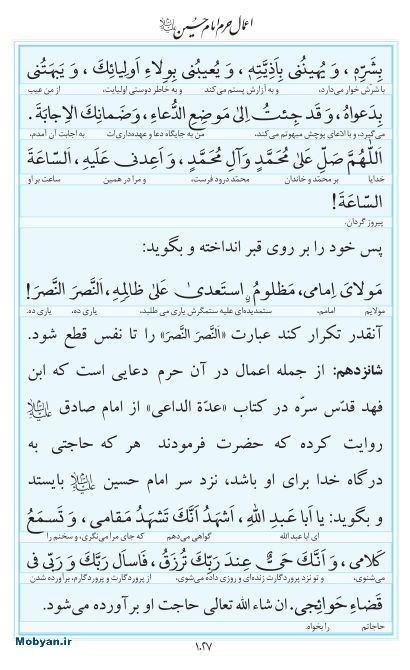 اعمال حرم امام حسین علیه‌السلام
بِشَرِّهِ، وَ یُهینُنی بِاَذِیَّتِهِ، وَ یُعیبُنی بِوِلاءِ اَولِیائِكَ، وَ یَبهَتُنی
با شرّش خوار می‌دارد، و به آزارش پستم می‌کند و به خاطر دوستی اولیایت، از من عیب
بِدَعواهُ، وَ قَد جِئتُ اِلیٰ مَوضِعِ الدُّعاءِ، وَ ضَمانِكَ الاِجابَةَ.
می‌گیرد، و با ادّعای پوچش مبهوتم می‌کند، من به جایگاه دعا و عهده‌داری‌ات به اجابت آن آمدم،
اَللّٰهُمَّ صَلِّ عَلیٰ مُحَمَّدٍ وَ آلِ مُحَمَّدٍ، وَ اَعِدنی عَلَیهِ، اَلسّاعَةَ
خدایا بر محمّد و خاندان محمّد درود فرست، و مرا در همین ساعت بر او
السّاعَةَ!
پیروز گردان.
پس خود را بر روی قبر انداخته و بگوید:
مَولایَ اِمامی، مَظلومٌ اِستَعدیٰ عَلیٰ ظالِمِهِ، اَلنَّصرَ النَّصرَ!
مولایم امامم، ستمدیده‌ای علیه ستمگرش یاری می طلبد، یاری ده، یاری ده.
آنقدر تکرار کند عبارت «اَلنَّصرَ النَّصرَ» را تا نفس قطع شود.
شانزدهم: از جمله اعمال در آن حرم دعایی است که ابن
فهد قدّس سرّه در کتاب «عدّة الداعی» از امام صادق علیه‌السلام
روایت کرده که حضرت فرمودند هر که حاجتی به
درگاه خدا برای او باشد، نزد سر امام حسین علیه‌السلام بایستد
و بگوید: یا اَبا عَبدِ اللهِ، اَشهَدُ اَنَّكَ تَشهَدُ مَقامی، وَ تَسمَعُ
ای ابا عبد الله گواهی می‌دهم که جای مرا می‌نگری، و سخنم را
کَلامی، وَ اَنَّكَ حَیٌّ عِندَ رَبِّكَ تُرزَقُ، فَاساَل رَبَّكَ وَ رَبّی فی
می‌شنوی، و تو نزد پروردگارت زنده‌ای و روزی داده می‌شوی، از پروردگارت و پروردگارم، برآورده شدن
قَضاءِ حَوائِجی. ان شاء الله تعالی حاجت او برآورده می‌شود.
حاجاتم را بخواه.
Mobyan.ir
۱۰۲۷